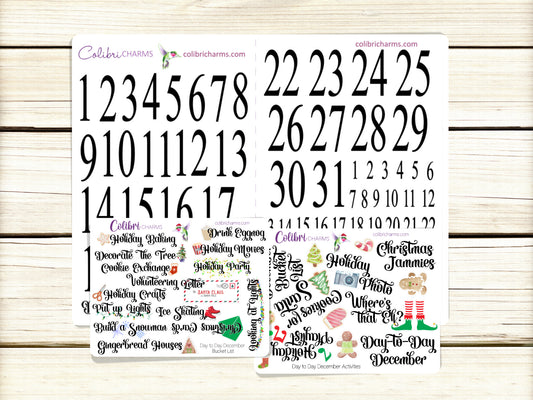 Colibri CHARMS
colibricharms.com
1 2 3 4 5 6 7 8
9 10 11 12 13
14 15 16 17
colibricharms.com
22 23 24 25
26 27 28 29
30 31 1 2 3 4 5 6
7 8 9 10 11 12
13 14 15 16 17 18 19 20 21 22
Colibri CHARMS
colibricharms.com
Drink Eggnog
Holiday Baking
Holiday Movies
Decorate The Tree
Cookie Exchange
Holiday Party
Volunteering
Letter
SANTA CLAUS
Holiday Crafts
Put up Lights
Ice Skating
Looking at Lights
Build a Snowman
Christmas Cards
Gingerbread Houses
Day to Day December
Bucket List
Colibri CHARMS
colibricharms.com
Bucket List
Holiday Photo
Christmas Jammies
Cookies for Santa
Where's that Elf?
Holiday Playlist
Day-to-Day December
Day to Day December Activities